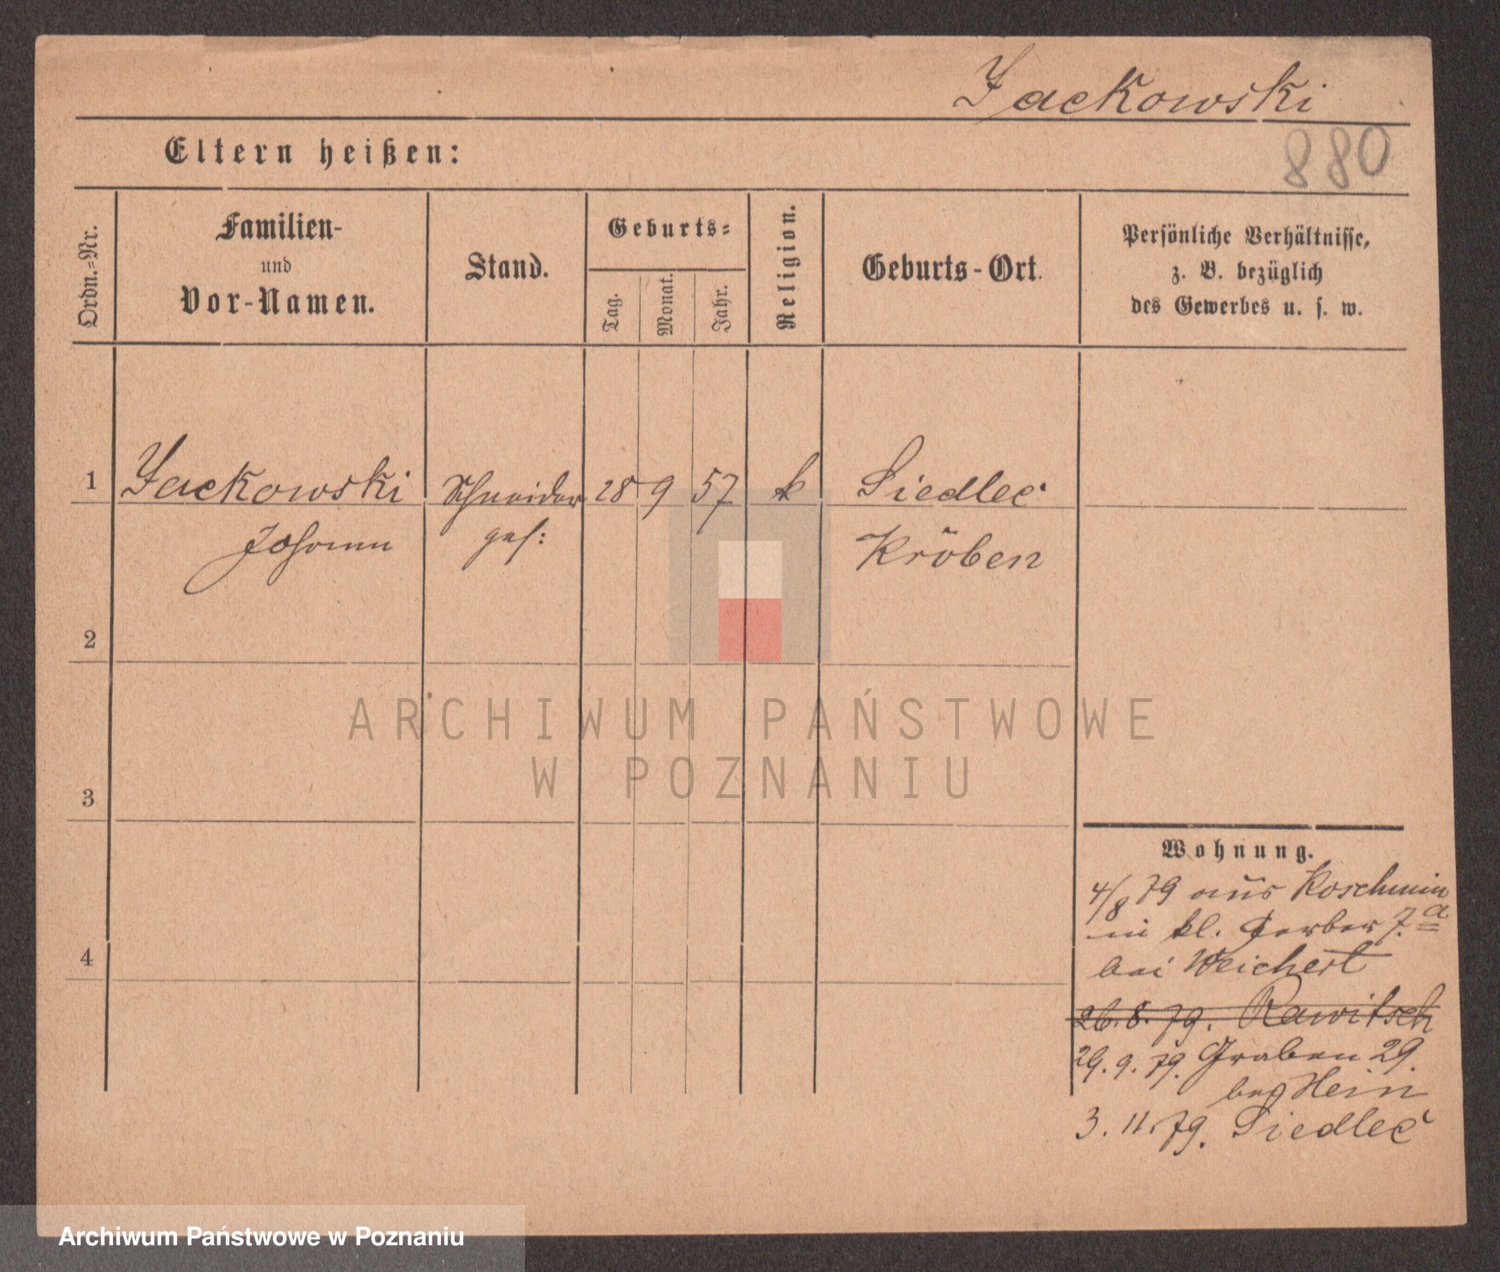 Jackowski
880
Eltern heißen:
Ordn.-Nr.
Familien-
und
Vor-Namen.
Stand.
Geburts-
Tag.
Monat.
Jahr.
Religion.
Geburts-Ort.
Persönliche Verhältnisse,
z. B. bezüglich
des Gewerbes u. s. w.
1 Jackowski Schneider 28 9 57 k Siedlec
Johann ges: Kröben
2
3
4
Wohnung.
4/8 79 aus Koschmin
in kl. Gerber 7.a
bei Weichert
26.8.79. Rawitsch
29.9.79. Graben 29.
bei Hein
3.11.79. Siedlec
ARCHIWUM PAŃSTWOWE
W POZNANIU
Archiwum Państwowe w Poznaniu